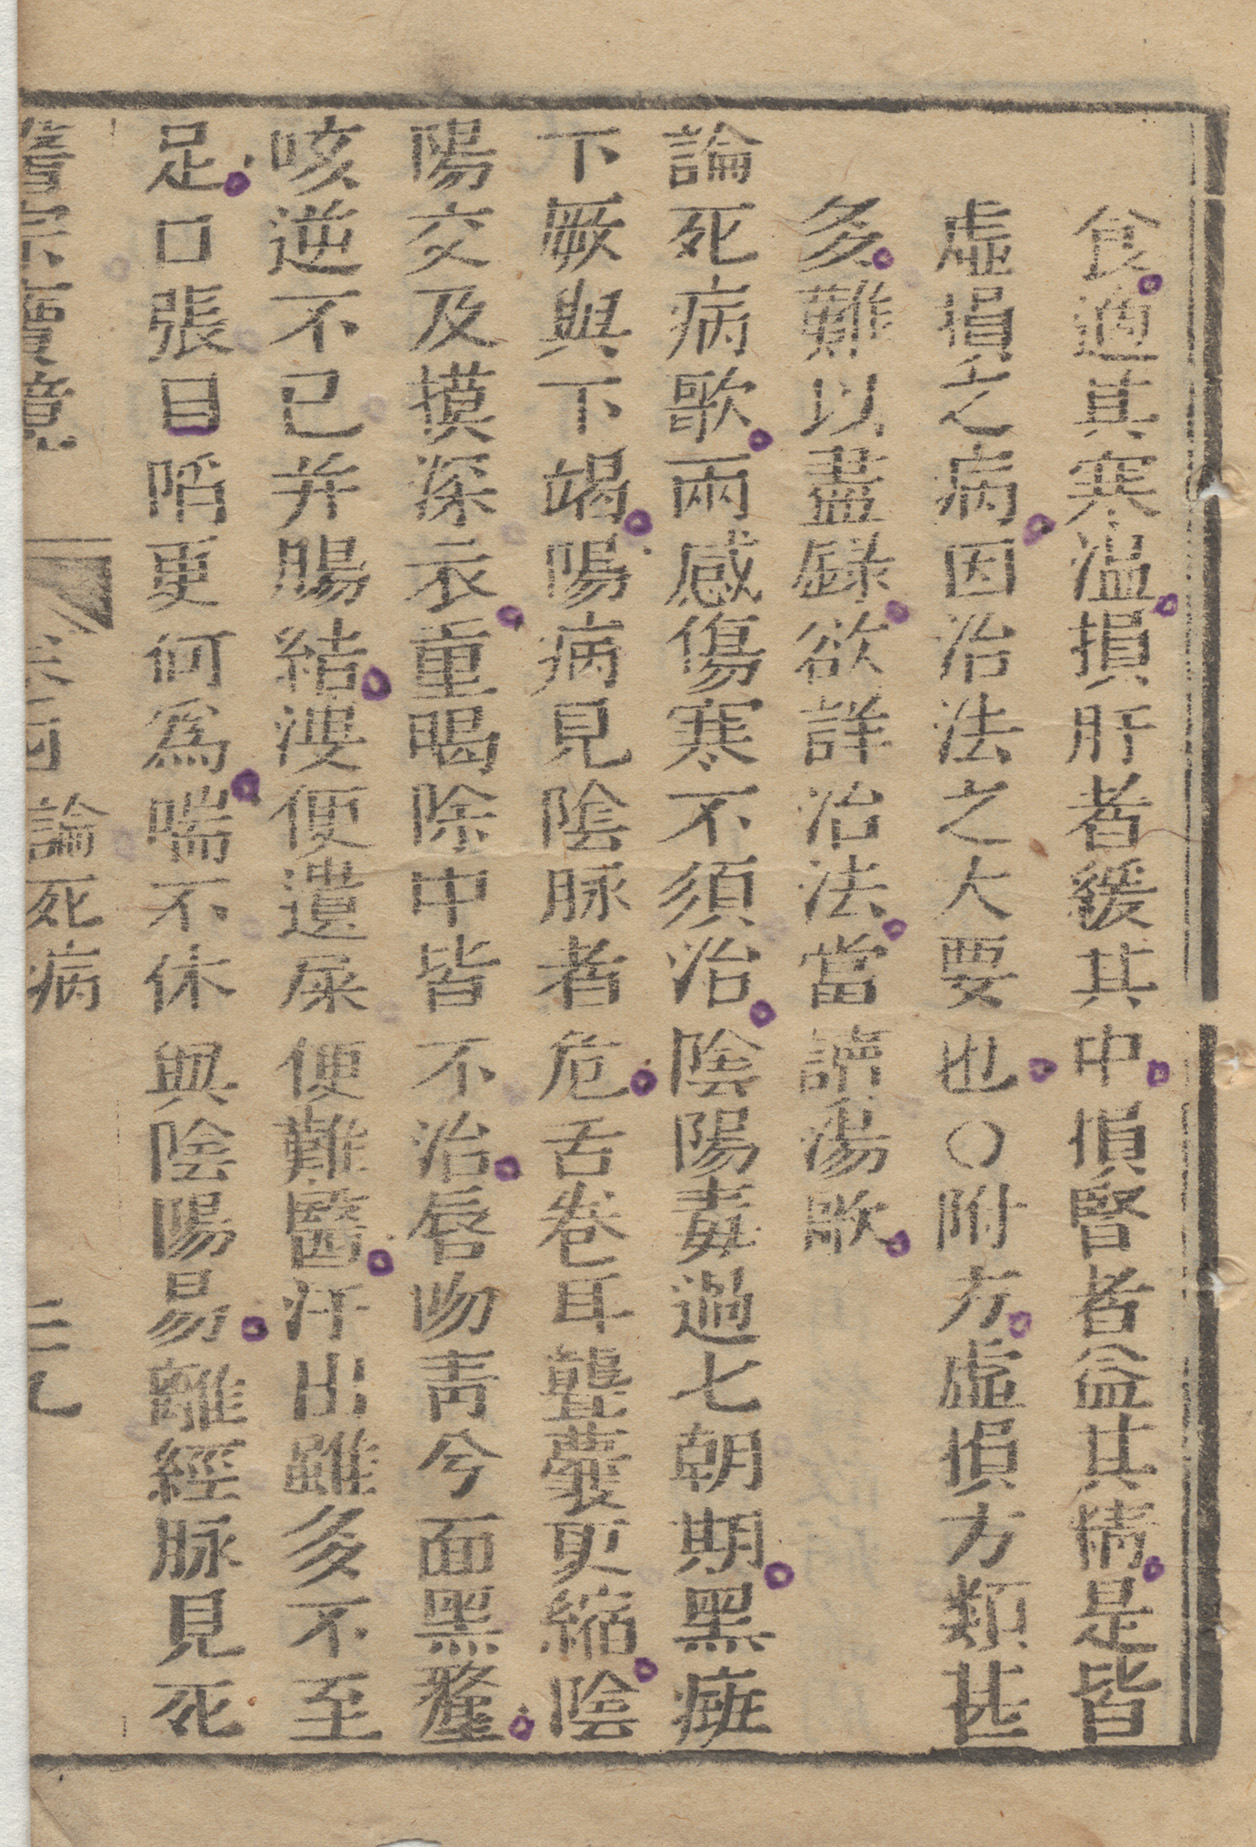 食適其寒溫損肝者緩其中損腎者益其精是皆
虛損之病因治法之大要也○附方虛損方類甚
多難以盡錄欲詳治法當讀湯歌
論死病歌兩感傷寒不須治陰陽毒過七朝期黑癍
下厥與下竭陽病見陰脉者危舌卷耳聾囊更縮陰
陽交及摸深衣重暍除中皆不治唇吻青兮面黑黧
咳逆不已并腸結溲便遺屎便難醫汗出雖多不至
足口張目陷更何爲喘不休與陰陽易離經脉見死
醫宗寶鏡 卷四 論死病 二九